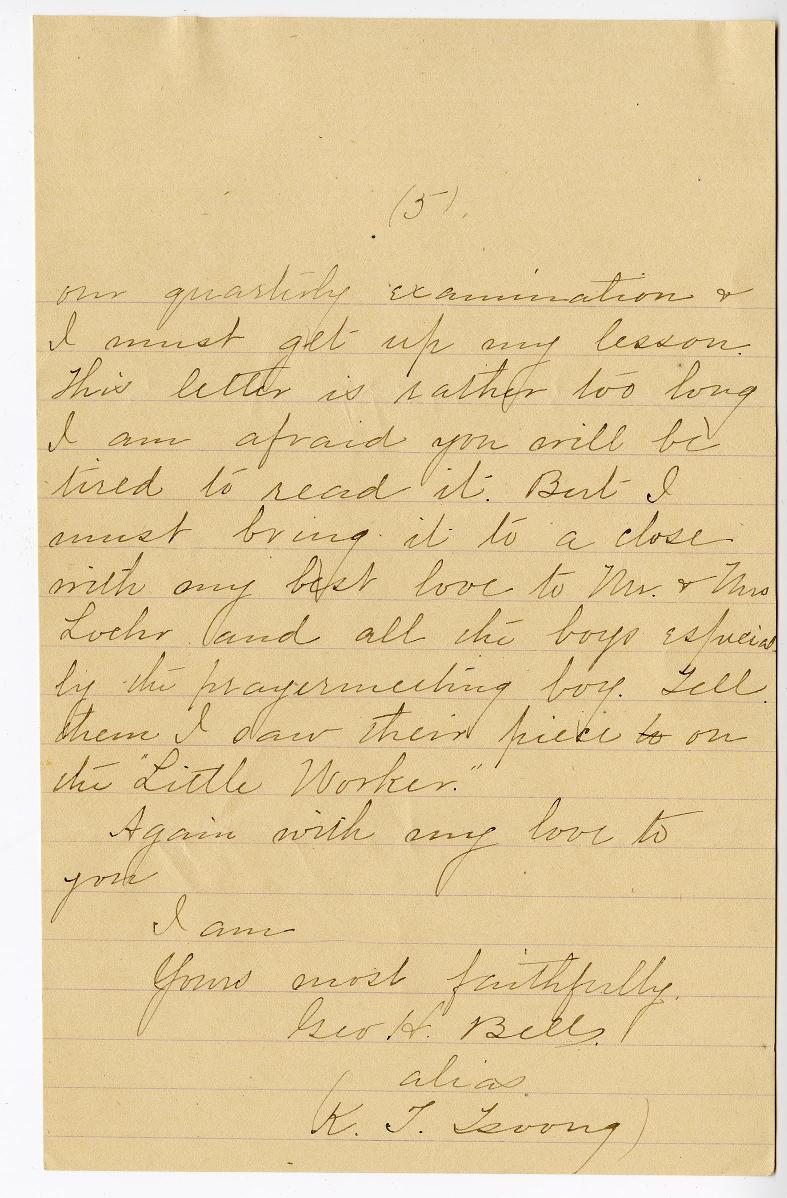 (5).
our quarterly examination &
I must get up my lesson.
This letter is rather too long
I am afraid you will be
tired to read it. But I
must bring it to a close
with my best love to Mr. & Mrs
Loehr and all the boys especial
ly the prayermeeting boy. Tell
them I saw their piece to on
the "Little Worker."
Again with my love to
you
I am
Yours most faithfully.
Geo H. Bell.
alias
(K. T. Tsoong)